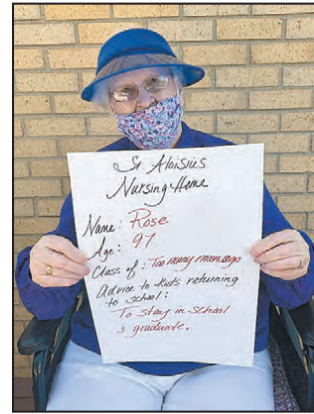 St Aloisius
Nursing Home
Name: Rose
Age: 97
Class of: Too many moons ago
Advice to kids returning
to school:
To stay in school
& graduate.